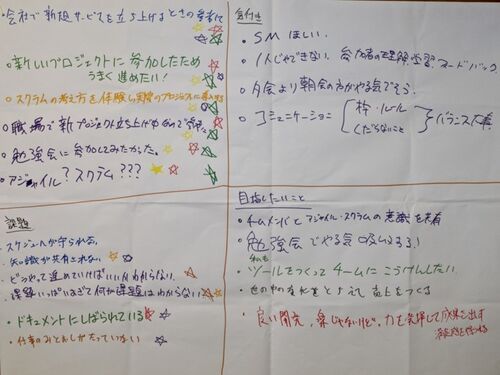 会社で新規サービスを立ち上げるときの参考に
新しいプロジェクトに参加したため
うまく進めたい！
スクラムの考え方を体験し実際のプロジェクトに
職場で新プロジェクト立ち上げ
勉強会に参加してみたかった。
アジャイル？スクラム？？？
気付き
SMほしい。
1人じゃできない。参加者の理解、学習、フィードバック
夕会より朝会の方がやる気でそう。
コミュニケーション
枠・ルール
くだらないこと
バランス大事。
課題
スケジュールが守られない
知識が共有されない
どうやって進めていけばいいかわからない。
課題いっぱいありすぎて何が課題かはわからない
ドキュメントにしばられている
仕事のみとおしがたっていない
目指したいこと
チームメンバとアジャイル・スクラムの意識を共有
勉強会でやる気
私も
ツールをつくってチームにこうけんしたい。
世の中の変化をとらえて売上をつくる
良い開発、楽じゃないけど、力を発揮して成果を出す